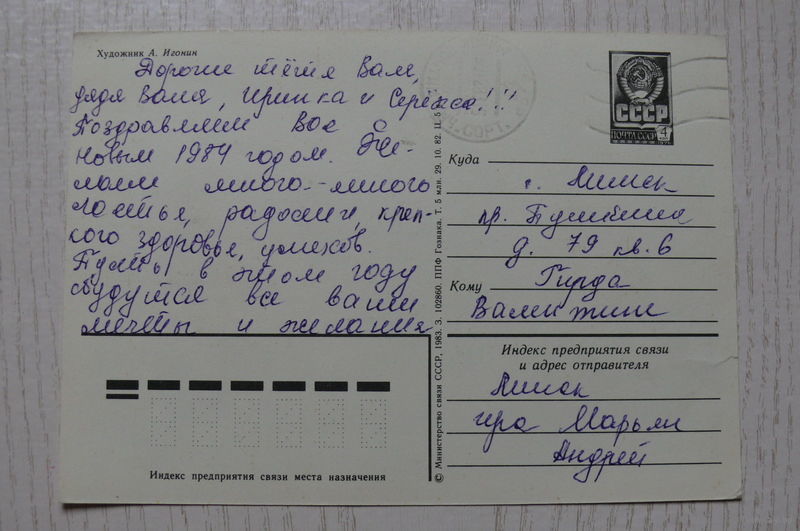 Художник А. Игонин
Дорогие тётя Валя,
дядя Ваня, Иринка и Серёжа!!!
Поздравляем Вас с
новым 1984 годом. Же-
лаем много-много
счастья, радости, креп-
кого здоровья, успехов.
Пусть в этом году
сбудутся все ваши
мечты и желания
СССР
ПОЧТА СССР 4
Куда
г. Минск
пр. Пушкина
д. 79 кв. 6
Кому
Гирда
Валентине
Индекс предприятия связи
и адрес отправителя
Минск
Марьян
Андрей
Индекс предприятия связи места назначения
© Министерство связи СССР, 1983. З. 102860. ППФ Гознака. Т. 5 млн. 29. 10. 82. Ц. 5